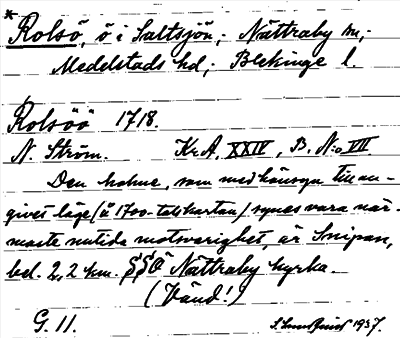 * Rolsö, ö i Saltsjön; Nättraby sn;
Medelstads hd; Blekinge l.
Rolsöö 1718.
N. Ström. Kr.A. XXIV, B. N:o VII
Den holme, som med hänsyn till an-
givet läge (å 1700-talskartan) synes vara när-
maste nutida motsvarighet, är Snipan,
bel. 2,2 km. SSO Nättraby kyrka.
(Vänd!)
G. 11. 1937.